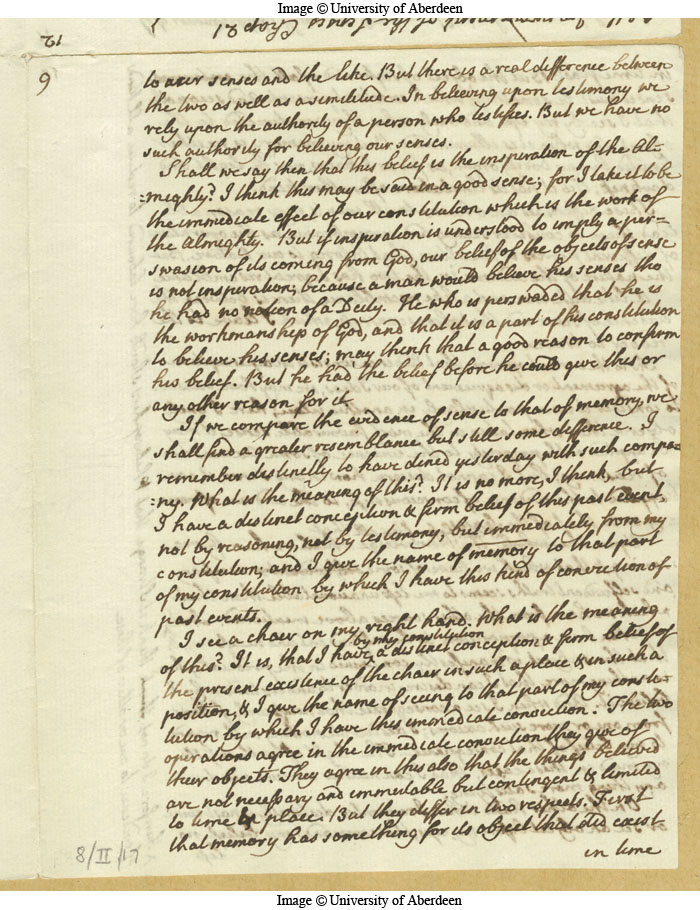 Image © University of Aberdeen
12
6
to our senses and the like. But there is a real difference between
the two as well as a similitude. In believing upon testimony we
rely upon the authority of a person who testifies. But we have no
such authority for believing our senses.
Shall we say then that this belief is the inspiration of the Al-
=mighty? I think this may be said in a good sense; for I take it to be
the immediate effect of our constitution which is the work of
the Almighty. But if inspiration is understood to imply a per=
swasion of its coming from God, our belief of the objects of sense
is not inspiration; because a man would believe his senses tho
he had no notion of a Deity. He who is perswaded that he is
the workmanship of God, and that it is a part of his constitution
to believe his senses; may think that a good reason to confirm
his belief. But he had the belief before he could give this or
any other reason for it
If we compare the evidence of sense to that of memory, we
shall find a greater resemblance but still some difference. I
remember distinctly to have dined yesterday with such compa=
=ny. What is the meaning of this? It is no more, I think, but
I have a distinct conception & firm belief of this past event,
not by reasoning, not by testimony, but immediately from my
constitution; and I give the name of memory to that part
of my constitution by which I have this kind of conviction of
past events.
I see a chair on my right hand. What is the meaning
by my constitution
of this? It is, that I have, a distinct conception & firm belief of
the present existence of the chair in such a place & in such a
position, & I give the name of seeing to that part of my consti-
tution by which I have this immediate conviction. The two
operations agree in the immediate conviction they give of
their objects. They agree in this also that the things believed
are not necessary and immutable but contingent & limited
to time & place. But they differ in two respects. First
that memory has something for its object that did exist
in time
8/II/17
Image © University of Aberdeen